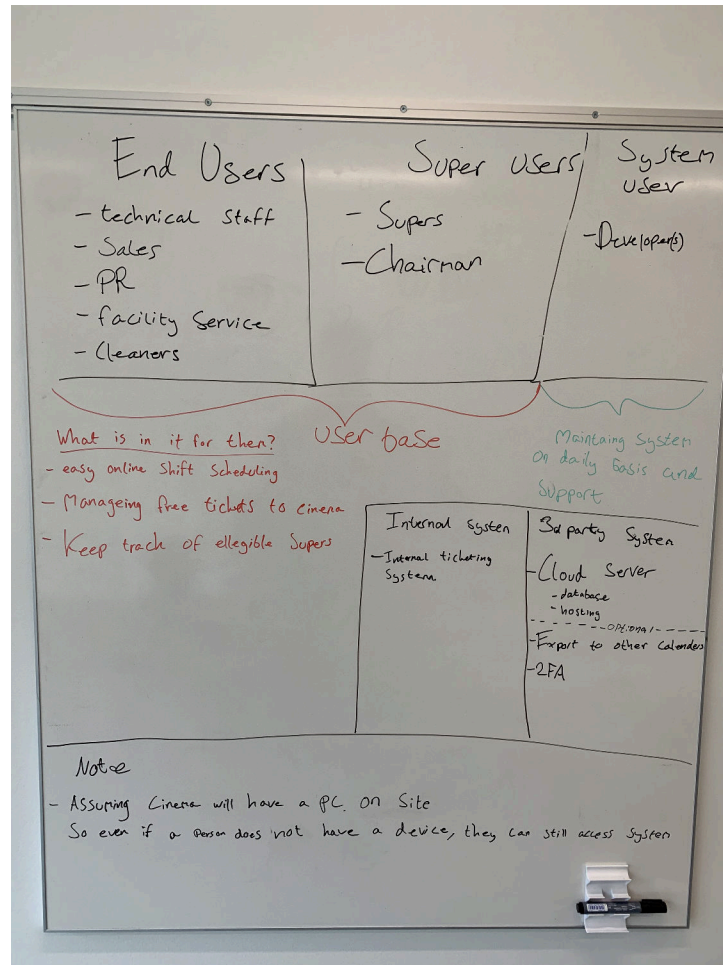 End Users
- technical staff
- Sales
- PR
- facility Service
- Cleaners
Super users
- Supers
- Chairman
System
user
- Developer(s)
User base
What is in it for them?
- easy online Shift Scheduling
- Manageing free tickets to cinema
- Keep track of ellegible Supers
Maintaing System
on daily basis and
Support
Internal System
- Internal ticketing
System
3d party System
- Cloud Server
- database
- hosting
optional
- Export to other Calenders
- 2FA
Note
- Assuming Cinema will have a PC on Site
So even if a person does not have a device, they can still access System